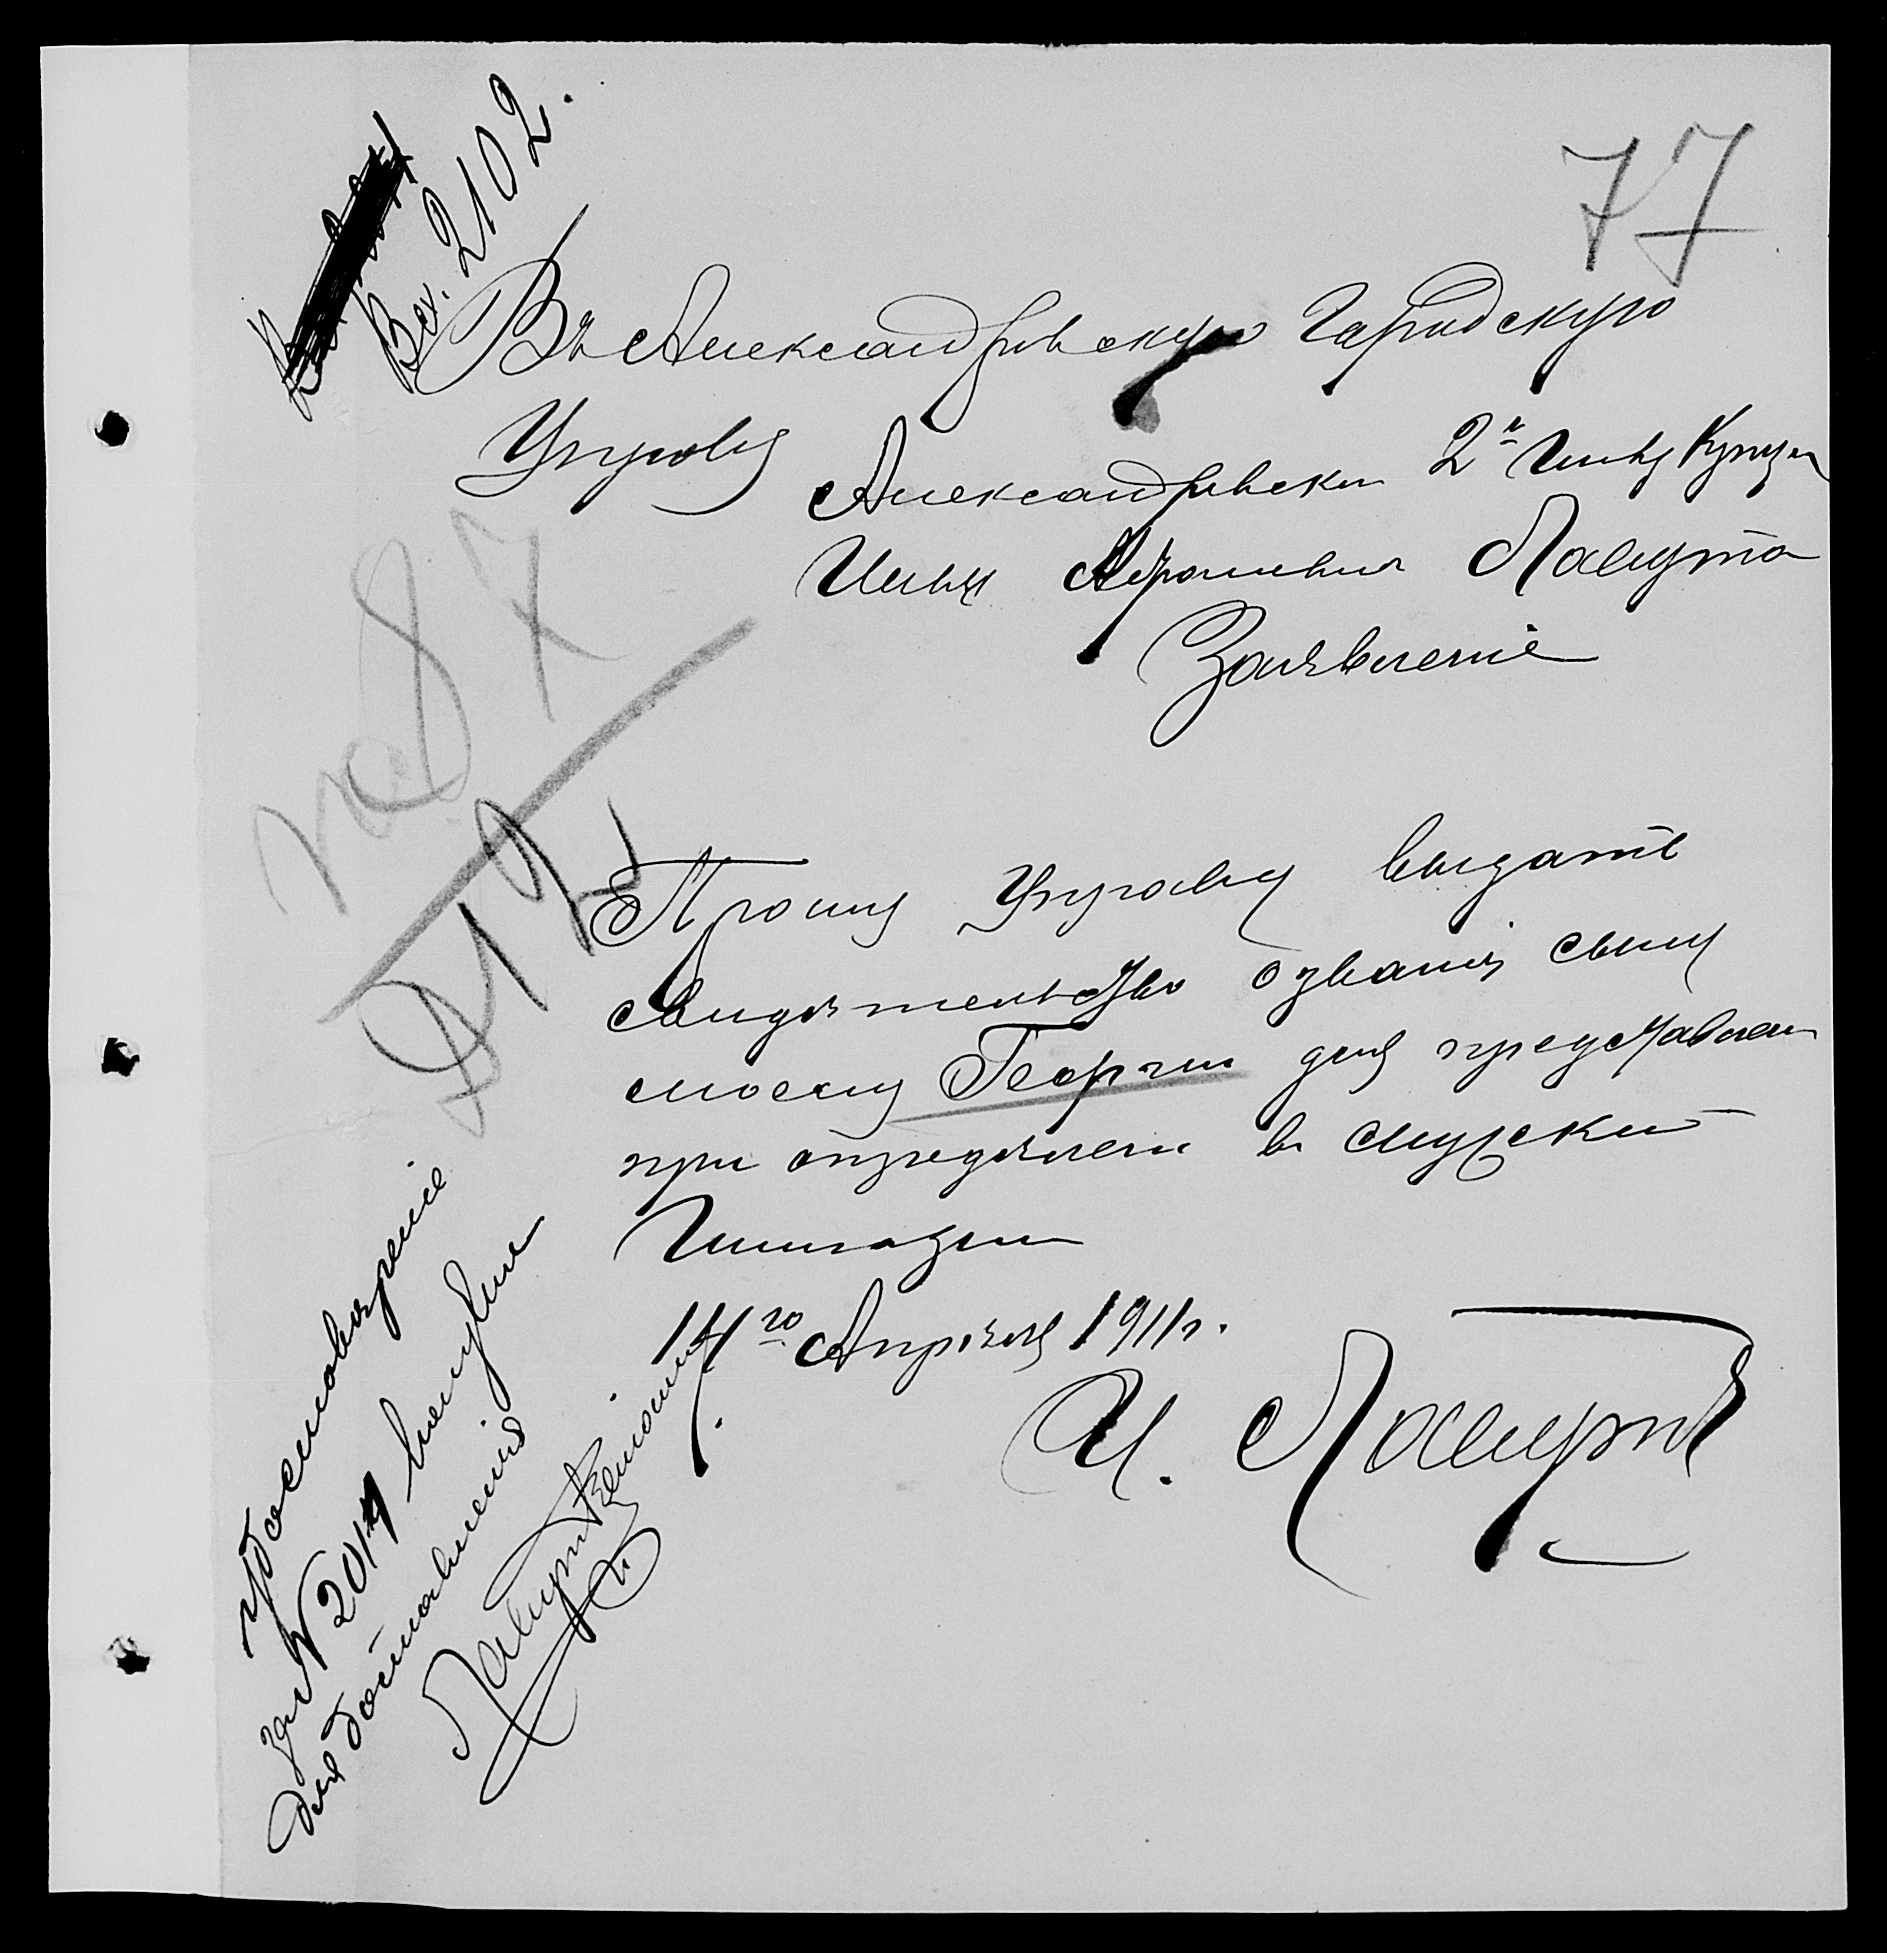 Вх. 2102.
77
Въ Александровскую Гародскую
Управу
Александровскаи 2й Гилд Купца
Ильи Абрамовича Лашута
Заявленіе
№87
212
Прошу Управу выдать
свидѣтельство о званіи сыну
моему Георгии для представлени
при опредѣлени в мужскую
Гимназии
14го Апрѣля 1911г.
И. Лашутъ
Удостовѣреніе
за № 2014 получилъ
для доставленія